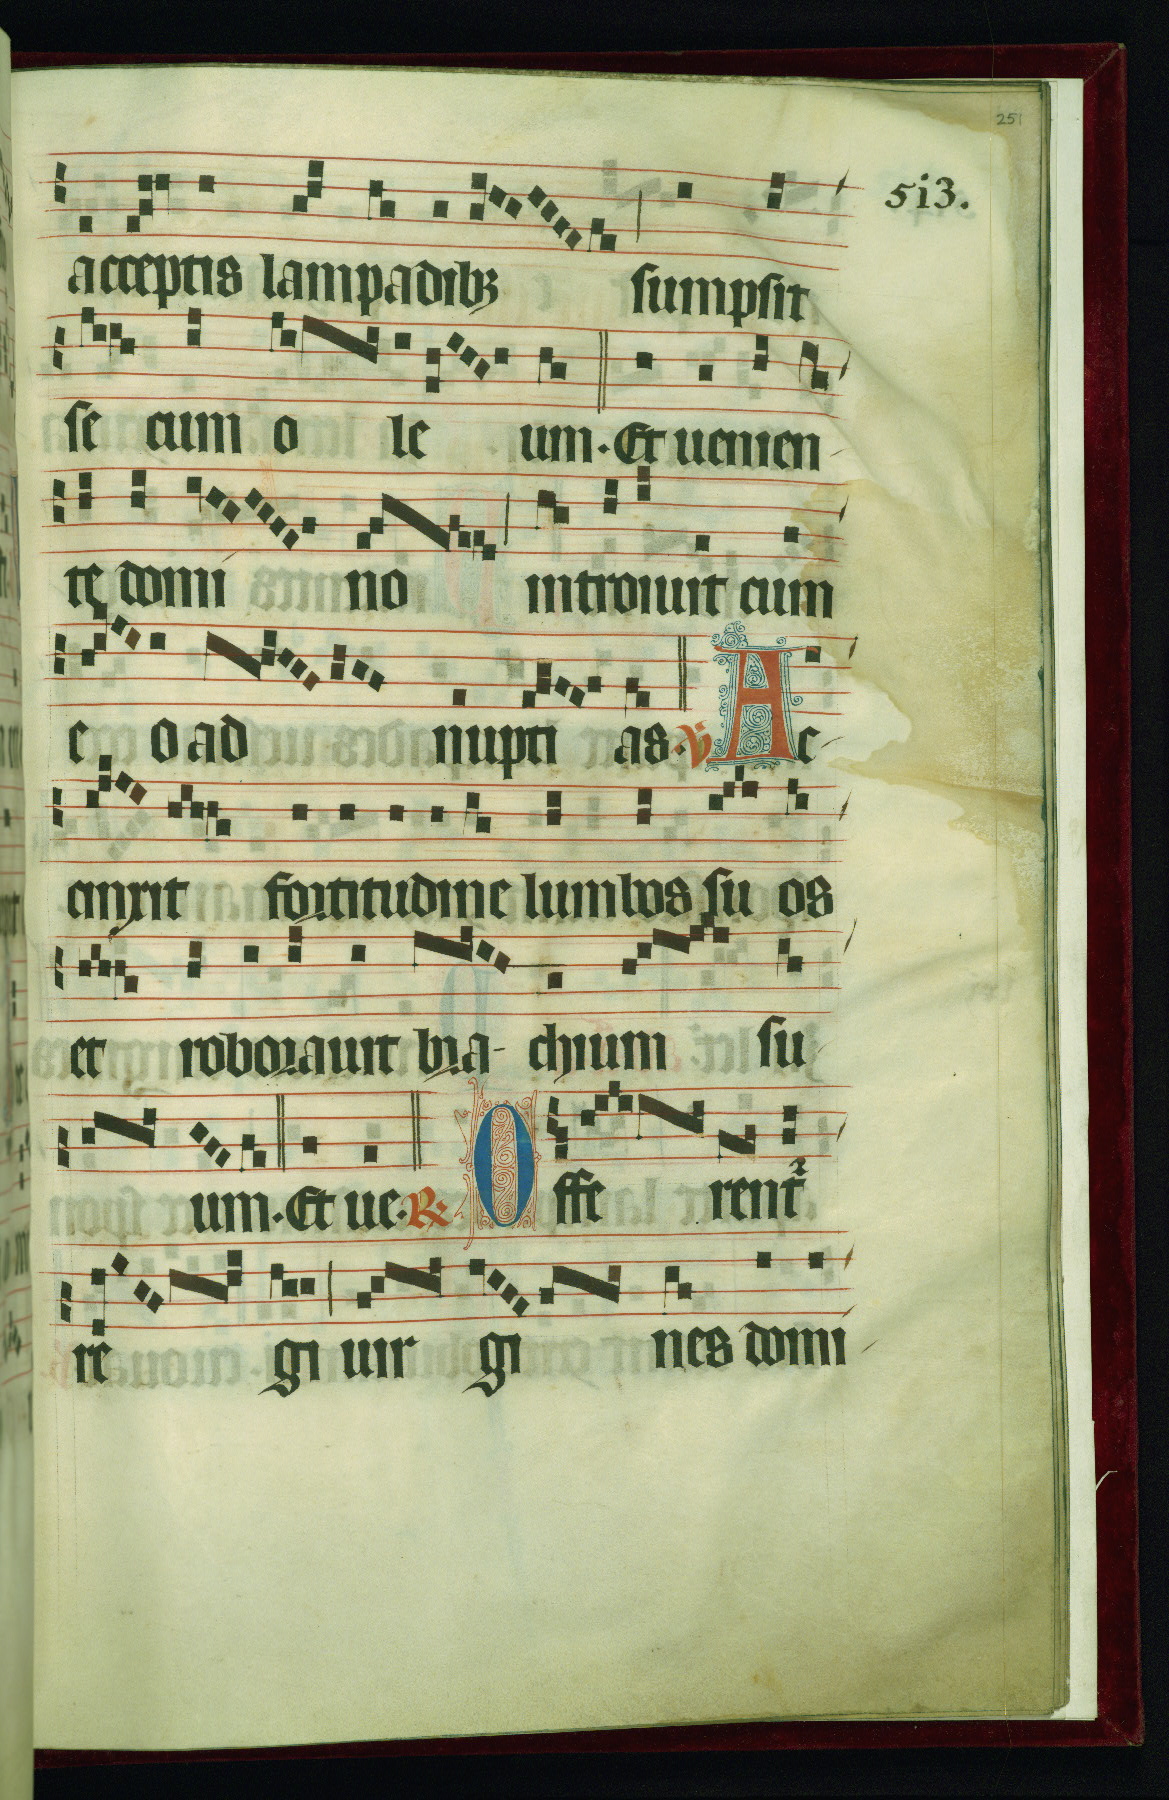 251
5i3.
acceptis lampadibꝫ sumpsit
se cum o le um. Et uenien
te domi no introiuit cum
e o ad nupti as. ℣ Ac
cinxit fortitudine lumbos su os
et roborauit bra chium su
um. Et ue. ℟ Offe rent᷑
re gi uir gi nes domi